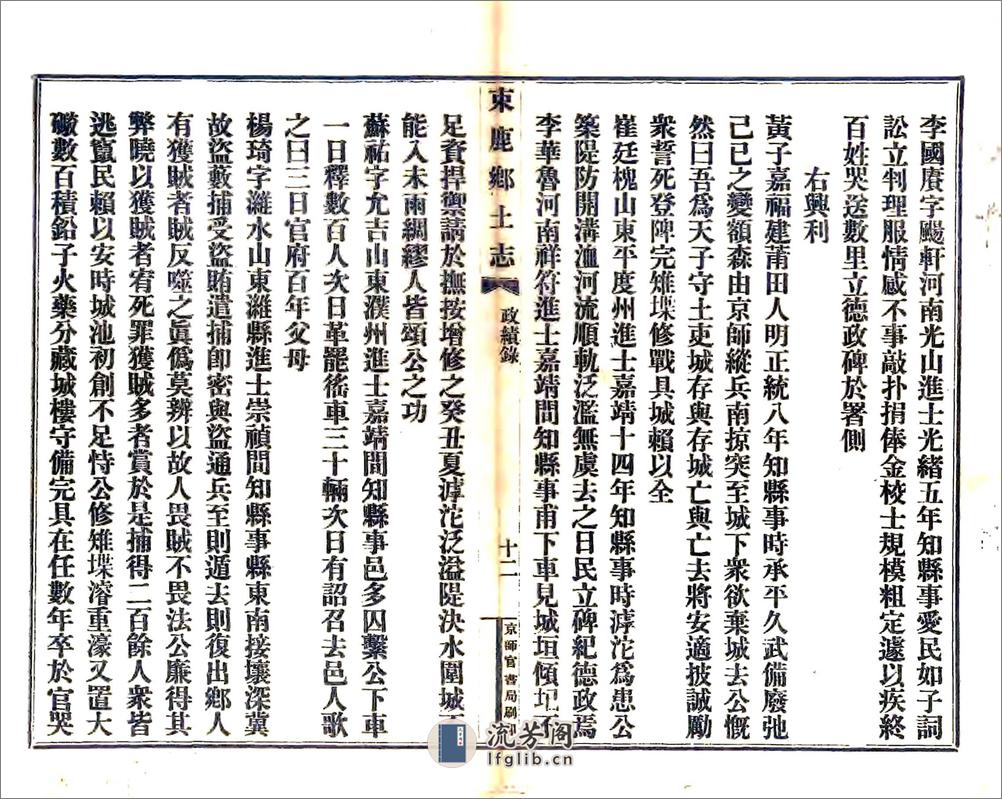 李國賡字颺軒河南光山進士光緒五年知縣事愛民如子詞
訟立判理服情感不事敲扑捐俸金校士規模粗定遽以疾終
百姓哭送數里立德政碑於署側
右興利
黃子嘉福建莆田人明正統八年知縣事時承平久武備廢弛
己巳之變額森由京師縱兵南掠突至城下衆欲棄城去公慨
然曰吾爲天子守土吏城存與存城亡與亡去將安適披誠勵
衆誓死登陴完雉堞修戰具城賴以全
崔廷槐山東平度州進士嘉靖十四年知縣事時滹沱爲患公
築隄防開溝洫河流順軌泛濫無虞去之日民立碑紀德政焉
李華魯河南祥符進士嘉靖間知縣事甫下車見城垣傾圮不
束鹿鄉土志 政績錄 十二 京師官書局刷印
足資捍禦請於撫按增修之癸丑夏滹沱泛溢隄決水圍城不
能入未雨綢繆人皆頌公之功
蘇祐字允吉山東濮州進士嘉靖間知縣事邑多囚繫公下車
一日釋數百人次日革罷徭車三十輛次日有詔召去邑人歌
之曰三日官府百年父母
楊琦字濰水山東濰縣進士崇禎間知縣事縣東南接壤深冀
故盜數捕受盜賄遣捕卽密與盜通兵至則遁去則復出鄉人
有獲賊者賊反噬之眞僞莫辨以故人畏賊不畏法公廉得其
弊曉以獲賊者宥死罪獲賊多者賞於是捕得二百餘人衆皆
逃竄民賴以安時城池初創不足恃公修雉堞濬重濠又置大
礮數百積鉛子火藥分藏城樓守備完具在任數年卒於官哭
流芳閣
lfglib.cn